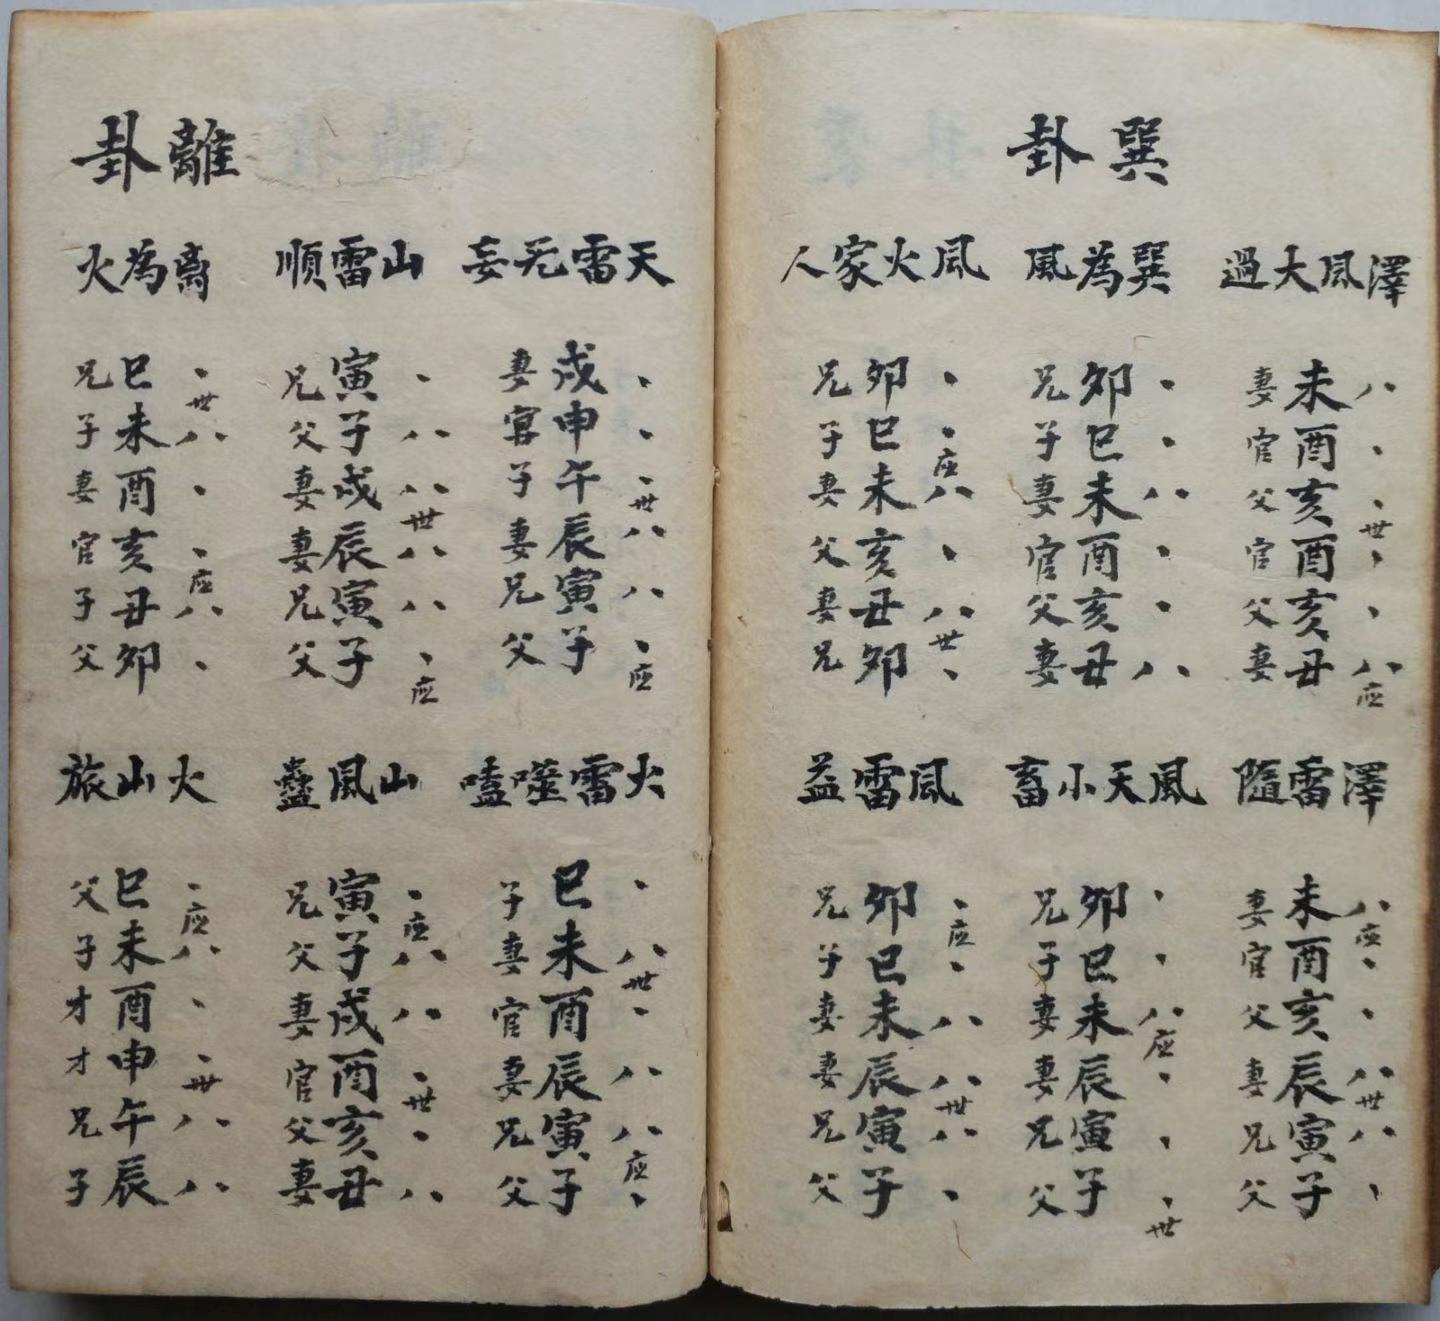 巽卦
澤風大過
八、、世、、八应
未酉亥酉亥丑
妻官父官父妻
巽為風
、、八、、八
卯巳未酉亥丑
兄子妻官父妻
風火家人
、、应八、八世、
卯巳未亥丑卯
兄子妻父妻兄
澤雷隨
八应、、八世八、
未酉亥辰寅子
妻官父妻兄父
風天小畜
、、八应、、、世
卯巳未辰寅子
兄子妻妻兄父
風雷益
、应、八八世八、
卯巳未辰寅子
兄子妻妻兄父
離卦
天雷无妄
、、、世八八、应
戌申午辰寅子
妻官子妻兄父
山雷順
、八八世八八、应
寅子戌辰寅子
兄父妻妻兄父
离為火
、世八、、应八、
巳未酉亥丑卯
兄子妻官子父
火雷噬嗑
、八世、八八应、
巳未酉辰寅子
子妻官妻兄父
山風蠱
、应八八、世、八
寅子戌酉亥丑
兄父妻官父妻
火山旅
、应八、、世八八
巳未酉申午辰
父子才才兄子